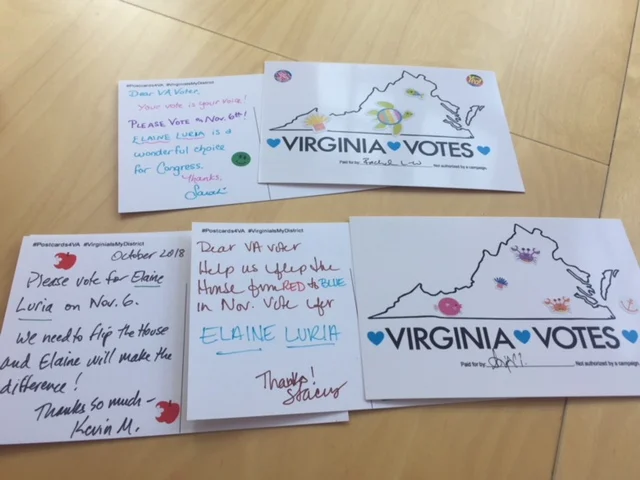 #Postcards4VA #VirginiaIsMyDistrict
Dear VA Voter,
Your vote is your voice!
PLEASE VOTE on NOV. 6th!
ELAINE LURIA is a
wonderful choice
for Congress.
Thanks,
Sarah
VIRGINIA VOTES
Paid for by: Not authorized by a campaign.
#Postcards4VA #VirginiaIsMyDistrict
October 2018
Please vote for Elaine
Luria on Nov. 6.
We need to flip the House
and Elaine will make the
difference!
Thanks so much -
Kevin M.
#Postcards4VA #VirginiaIsMyDistrict
Dear VA voter
Help us flip the
House from RED to BLUE
in Nov. Vote for
ELAINE LURIA
Thanks!
Stacey
VIRGINIA VOTES
Paid for by: Not authorized by a campaign.